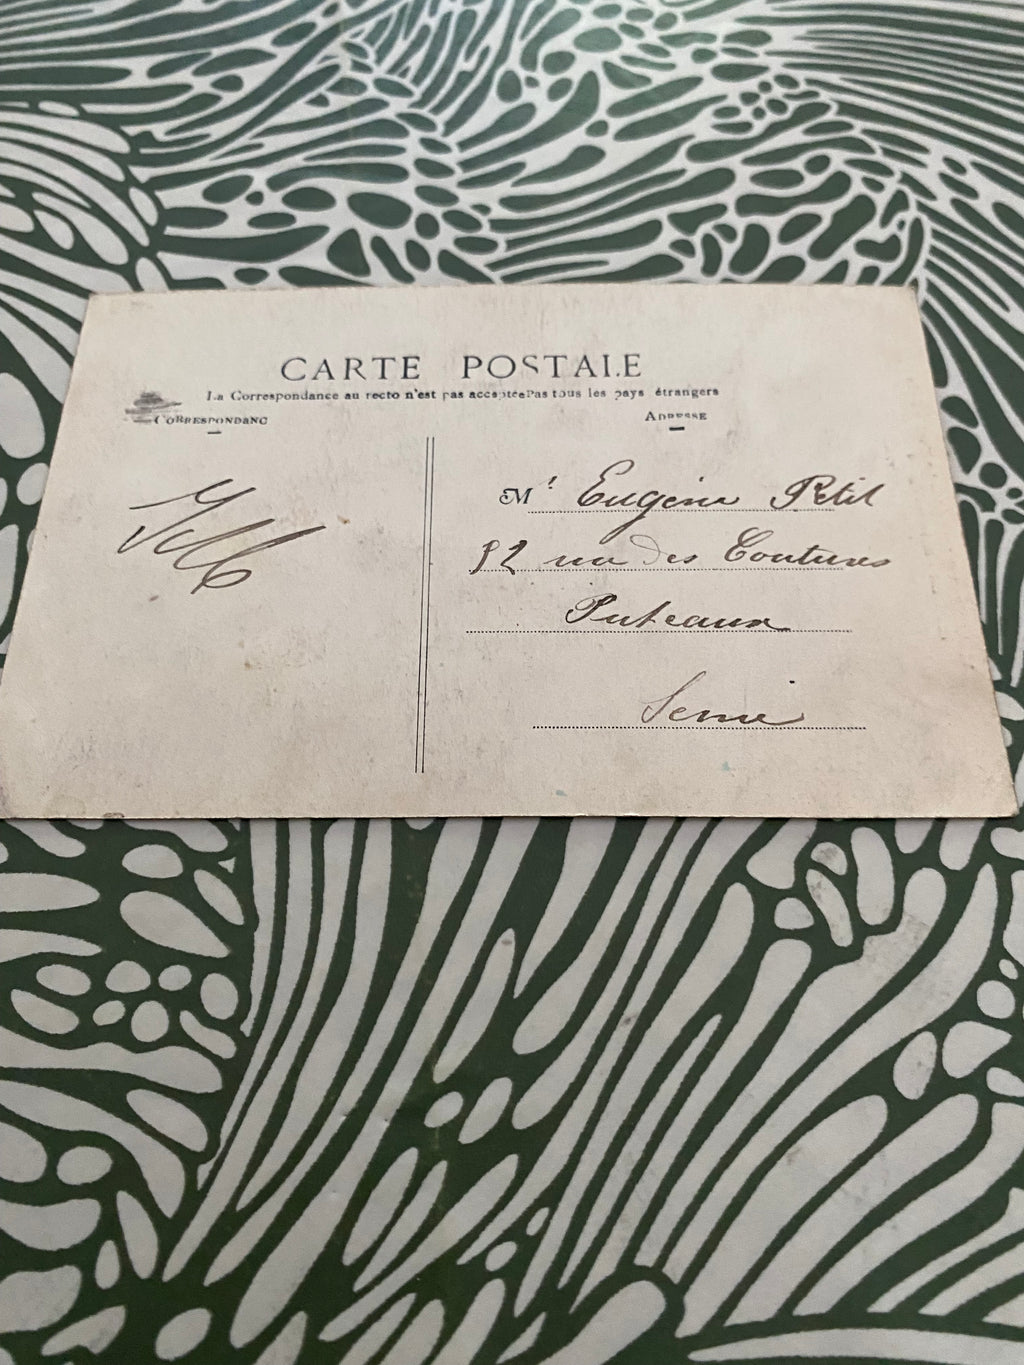 CARTE POSTALE
La Correspondance au recto n'est pas acceptée Pas tous les pays étrangers
CORRESPONDANC
ADRESSE
M.r Eugène Petit
52 rue des Coutures
Puteaux
Seine